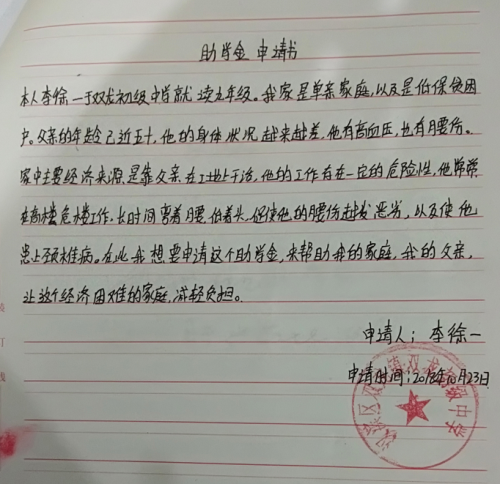 助学金 申请书
本人李徐一于双龙初级中学就读九年级。我家是单亲家庭,以及是低保贫困
户。父亲的年龄已近五十,他的身体状况越来越差,他有高血压,也有腰伤。
家中主要经济来源是靠父亲在工地上干活,他的工作存在一定的危险性,他常常
在高楼危楼工作。长时间弯着腰,低着头,促使他的腰伤越发恶劣,以及使他
患上颈椎病。在此我想要申请这个助学金,来帮助我的家庭,我的父亲,
让这个经济困难的家庭,减轻负担。
申请人:李徐一
申请时间:2018年10月23日
双龙 初级中学